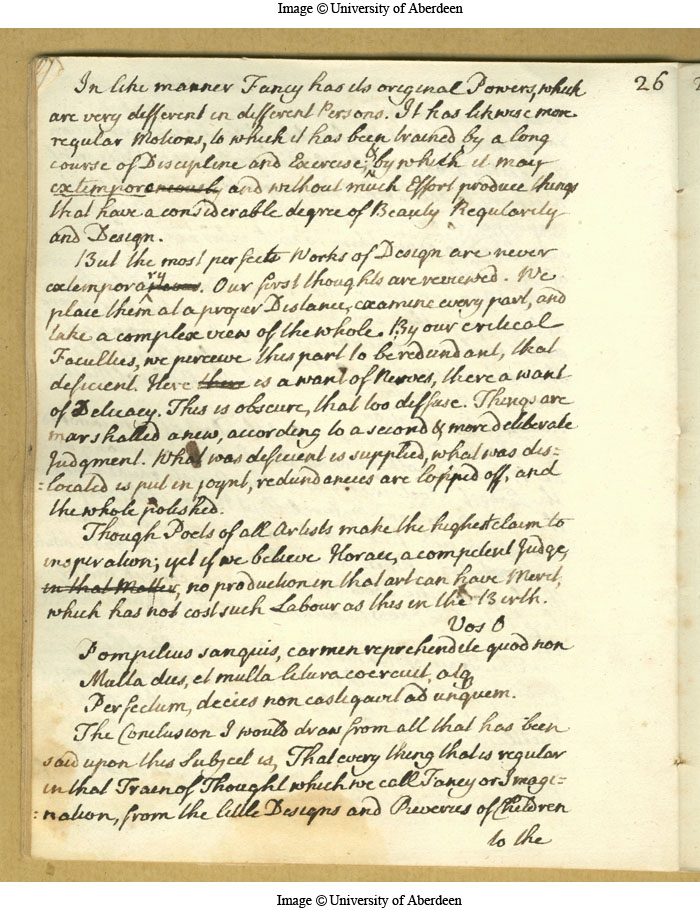 Image © University of Aberdeen
26
In like manner Fancy has its original Powers, which
are very different in different Persons. It has likwise more
regular Motions, to which it has been trained by a long
course of Discipline and Exercise; & by which it may
extemporeneously and without much Effort produce things
that have a considerable degree of Beauty Regularity
and Design.
But the most perfect Works of Design are never
extemporary. Our first thoughts are reviewed. We
place them at a proper Distance, examine every part, and
take a complex view of the whole. By our critical
Faculties, we perceive this part to be redundant, that
deficient. Here there is a want of Nerves, there a want
of Delicacy. This is obscure, that too diffuse. Things are
marshalled anew, according to a second & more deliberate
Judgment. What was deficient is supplied, what was dis=
=located is put in joynt, redundancies are lopped off, and
the whole polished.
Though Poets of all Artists make the highest claim to
inspiration; yet if we believe Horace, a competent Judge,
in that Matter, no production in that art can have Merit,
which has not cost such Labour as this in the Birth.
Vos O
Pompilius sanquis, carmen reprehendite quod non
Multa dies, et multa litura coercuit, atq
Perfectum, decies non castigavit ad unquem.
The Conclusion I would draw from all that has been
said upon this Subject is, That every thing that is regular
in that Train of Thought which we call Fancy or Imagi=
=nation, from the little Designs and Reveries of Children
to the
Image © University of Aberdeen